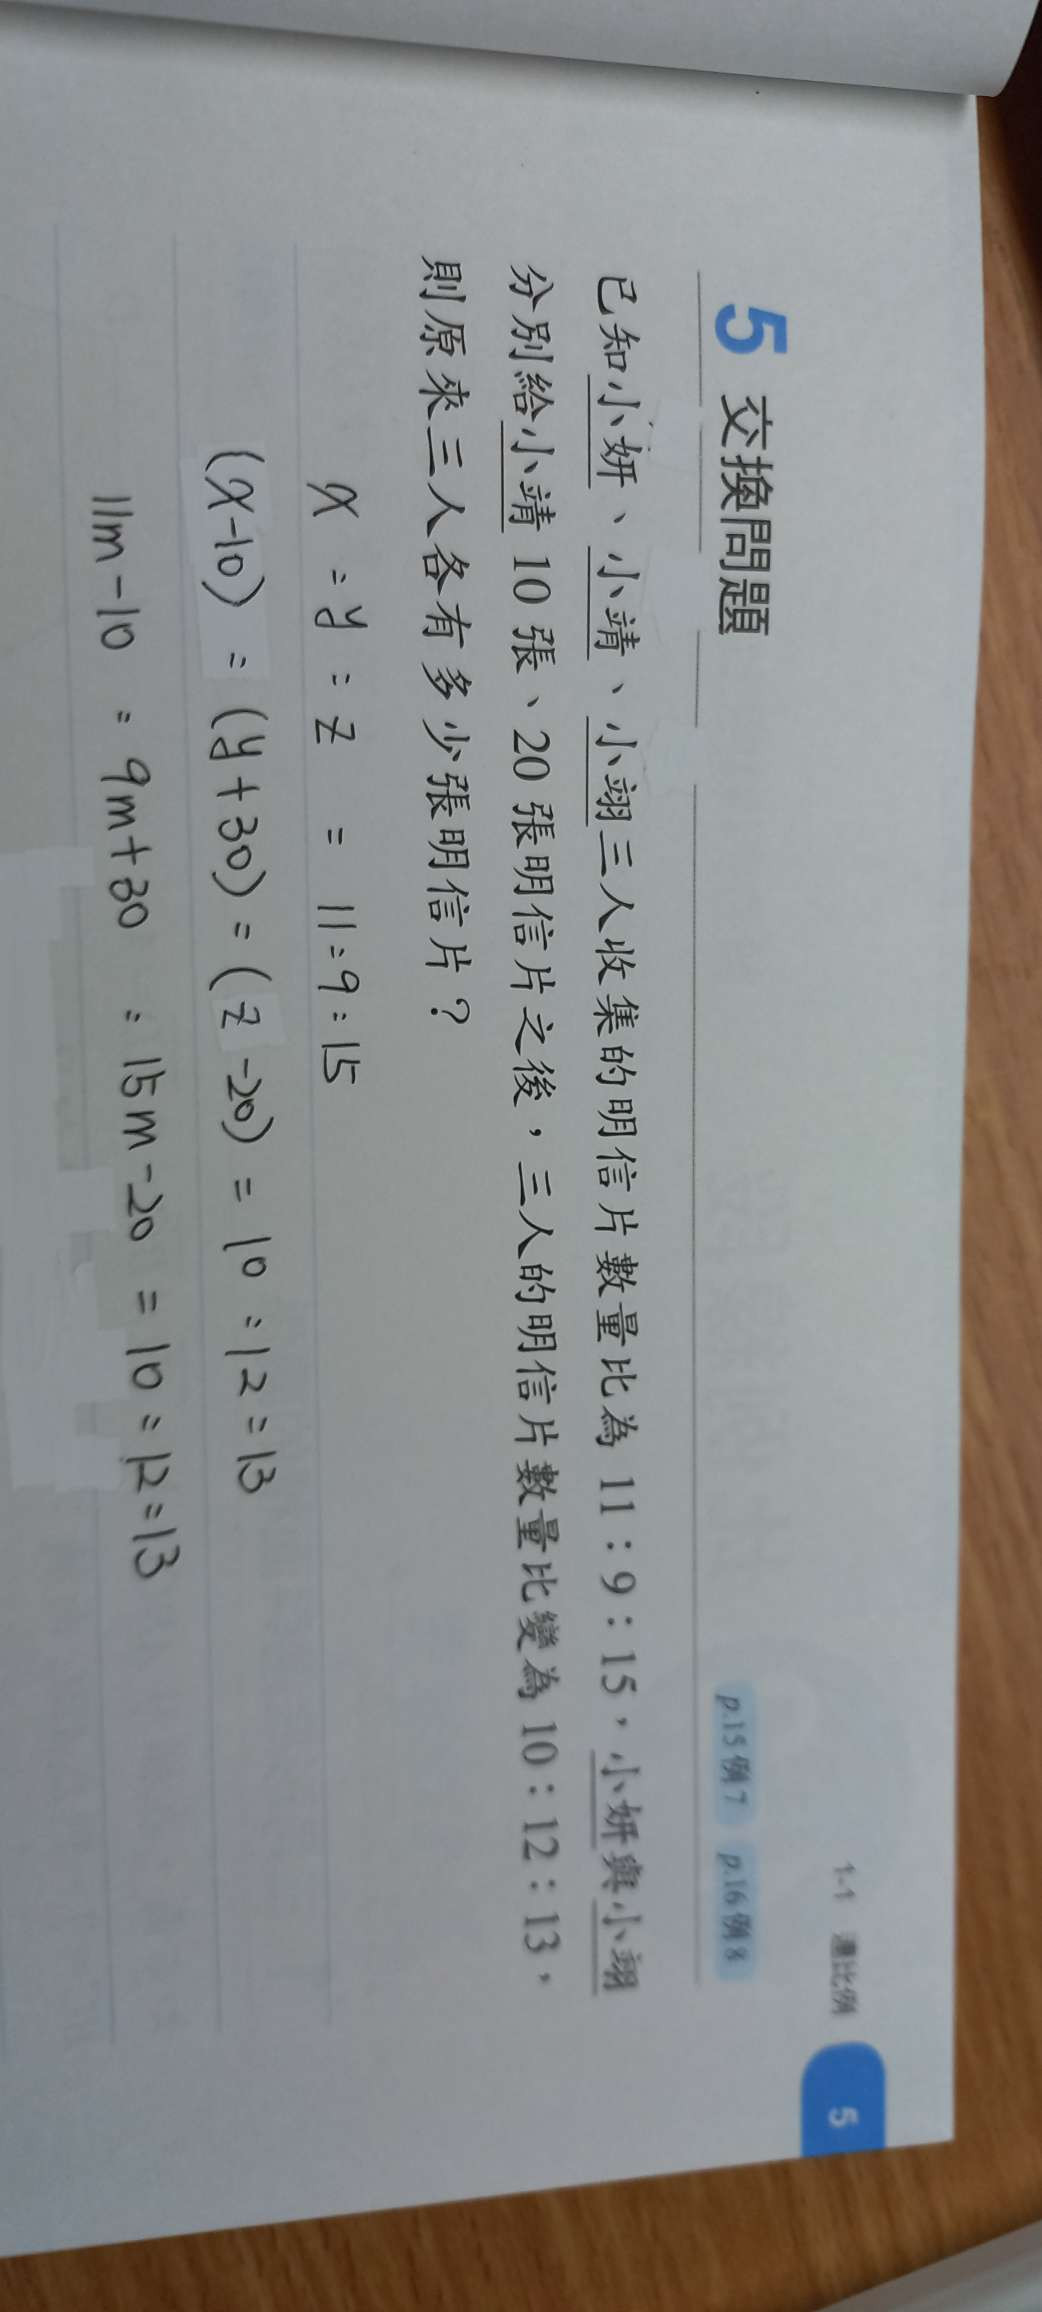 1-1 連比例 5
5 交換問題 p.15 例 7 p.16 例 8
已知小妍、小靖、小翊三人收集的明信片數量比為 11：9：15，小妍與小翊
分別給小靖 10 張、20 張明信片之後，三人的明信片數量比變為 10：12：13，
則原來三人各有多少張明信片？
x : y : z = 11 : 9 : 15
(x-10) : (y+30) : (z-20) = 10 : 12 : 13
11m-10 : 9m+30 : 15m-20 = 10 : 12 : 13